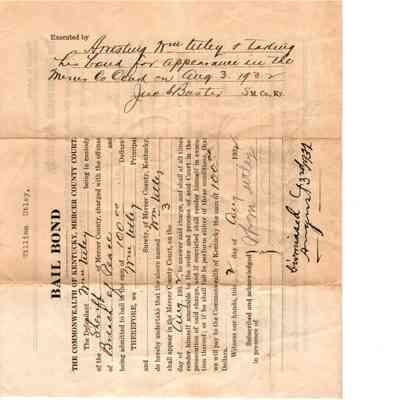 Executed by
Arresting Wm Utley & taking
his bond for appearance in the
Mercer Co Court on Aug 3. 1932
Jno S Baxter S.M.Co.Ky.
William Utley,
BAIL BOND
THE COMMONWEALTH OF KENTUCKY, MERCER COUNTY COURT.
The Defendant Wm Utley being in custody
of the Sheriff of Mercer County, charged with the offense
of Breach of Peace and
being admitted to bail in the sum of 100.00 Dollars
THEREFORE, we Wm Utley Principal
and Surety, of Mercer County, Kentucky,
do hereby undertake that the above named Wm Utley
shall appear in the Mercer County Court, on the 3
day of Aug 1932, to answer said charge, and shall at all times
render himself amenable to the order and process of said Court in the
prosecution of said charge, and if convicted shall render himself in execu-
tion thereof; or if he shall fail to perform either of these conditions, that
we will pay to the Commonwealth of Kentucky the sum of 100.00
Dollars.
Witness our hands, this 2 day of Aug 1932
Subscribed and acknowledged
in presence of
Wm Utley
Dismissed
August 3rd 1932